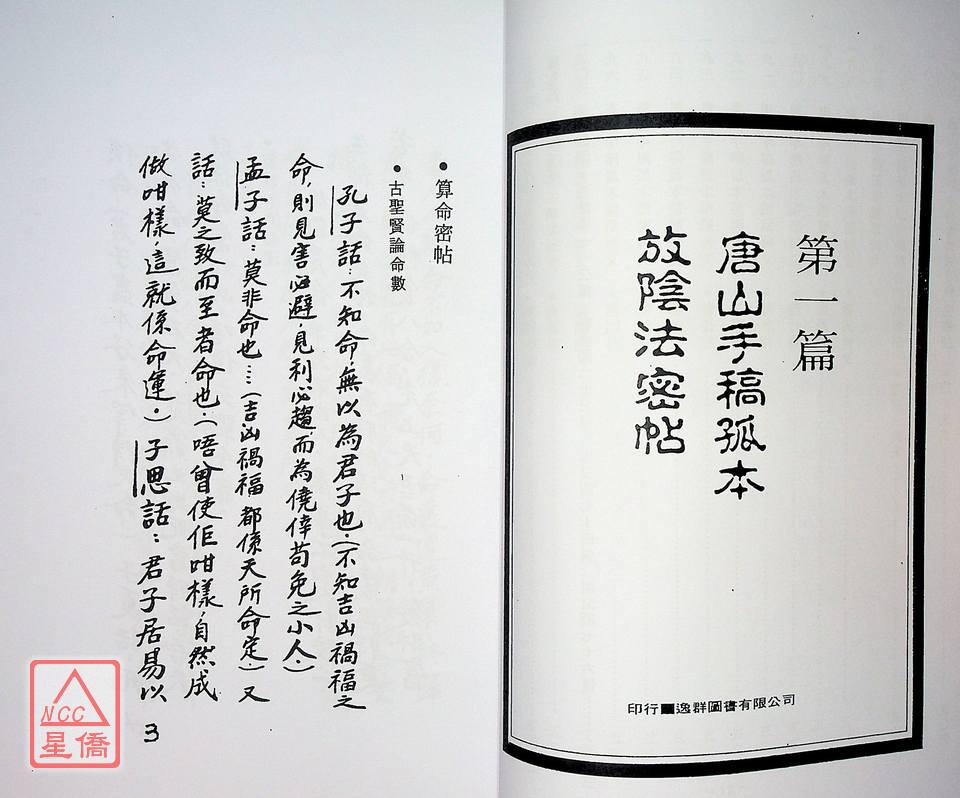 第一篇
唐山手稿孤本
放陰法密帖
印行■逸群圖書有限公司
●算命密帖
●古聖賢論命數
孔子話：不知命，無以為君子也，（不知吉凶禍福之
命，則見害必避，見利必趨，而為僥倖苟免之小人。）
孟子話：莫非命也…（吉凶禍福都係天所命定。）又
話：莫之致而至者命也，（唔曾使佢咁樣，自然成
做咁樣，這就係命運。）子思話：君子居易以
3
NCC
星僑